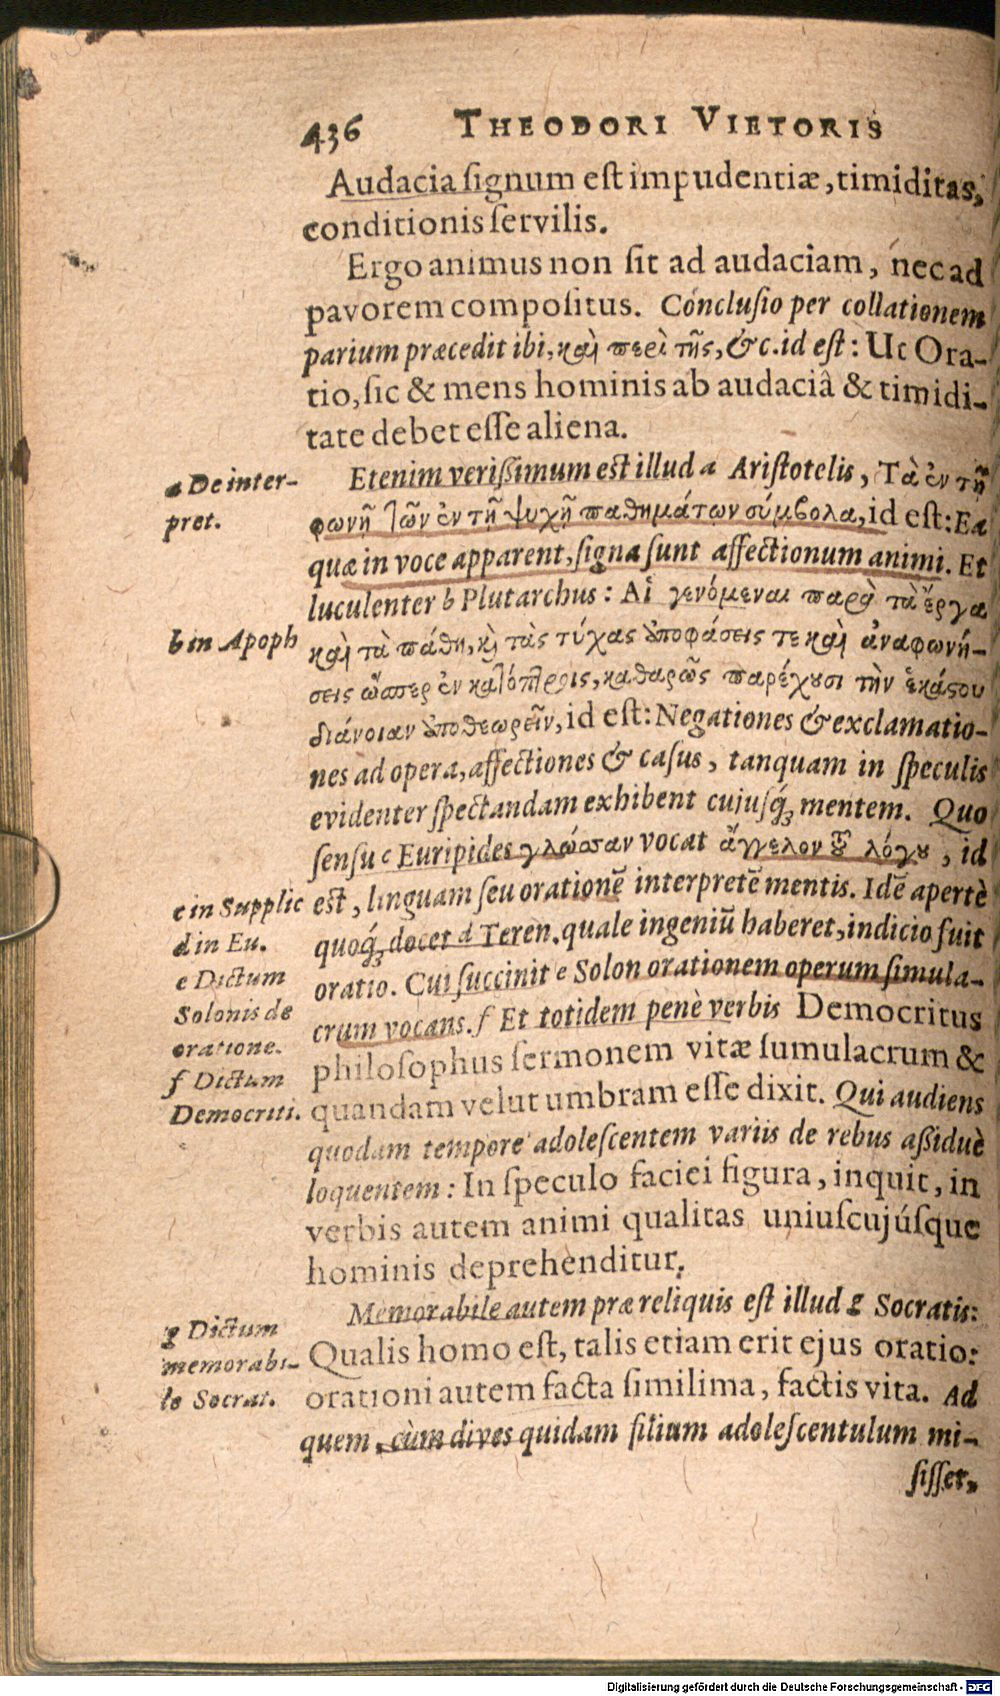 436 THEODORI VIETORIS
Audacia signum est impudentiæ, timiditas,
conditionis servilis.
Ergo animus non sit ad audaciam, nec ad
pavorem compositus. Conclusio per collationem
parium præcedit ibi, καὶ περὶ τῆς, &c. id est: Ut Ora-
tio, sic & mens hominis ab audaciâ & timidi-
tate debet esse aliena.
Etenim verissimum est illud a Aristotelis, Τὰ ἐν τῇ
a De inter-
pret.
φωνῇ τῶν ἐν τῇ ψυχῇ παθημάτων σύμβολα, id est: Ea
quæ in voce apparent, signa sunt affectionum animi. Et
luculenter b Plutarchus: Αἱ γενόμεναι παρὰ τὰ ἔργα
b in Apoph
καὶ τὰ πάθη, καὶ τὰς τύχας ὑποφάσεις τε καὶ ἀναφωνή-
σεις ὥσπερ ἐν κατόπτροις, καθαρῶς παρέχουσι τὴν ἑκάστου
διάνοιαν ὑποθεωρεῖν, id est: Negationes & exclamatio-
nes ad opera, affectiones & casus, tanquam in speculis
evidenter spectandam exhibent cujusq́; mentem. Quo
sensu c Euripides γλώσσαν vocat ἄγγελον τοῦ λόγου, id
c in Supplic
est, linguam seu orationē interpretē mentis. Idē apertè
d in Eu.
quoq́; docet d Teren. quale ingeniū haberet, indicio fuit
e Dictum
Solonis de
oratione.
oratio. Cui succinit e Solon orationem operum simula-
crum vocans. f Et totidem penè verbis Democritus
f Dictum
Democriti.
philosophus sermonem vitæ sumulacrum &
quandam velut umbram esse dixit. Qui audiens
quodam tempore adolescentem variis de rebus assiduè
loquentem: In speculo faciei figura, inquit, in
verbis autem animi qualitas uniuscujúsque
hominis deprehenditur.
Memorabile autem præ reliquis est illud g Socratis:
g Dictum
memorabi-
le Socrat.
Qualis homo est, talis etiam erit ejus oratio:
orationi autem facta similima, factis vita. Ad
quem, cùm dives quidam filium adolescentulum mi-
sisset,
Digitalisierung gefördert durch die Deutsche Forschungsgemeinschaft - DFG